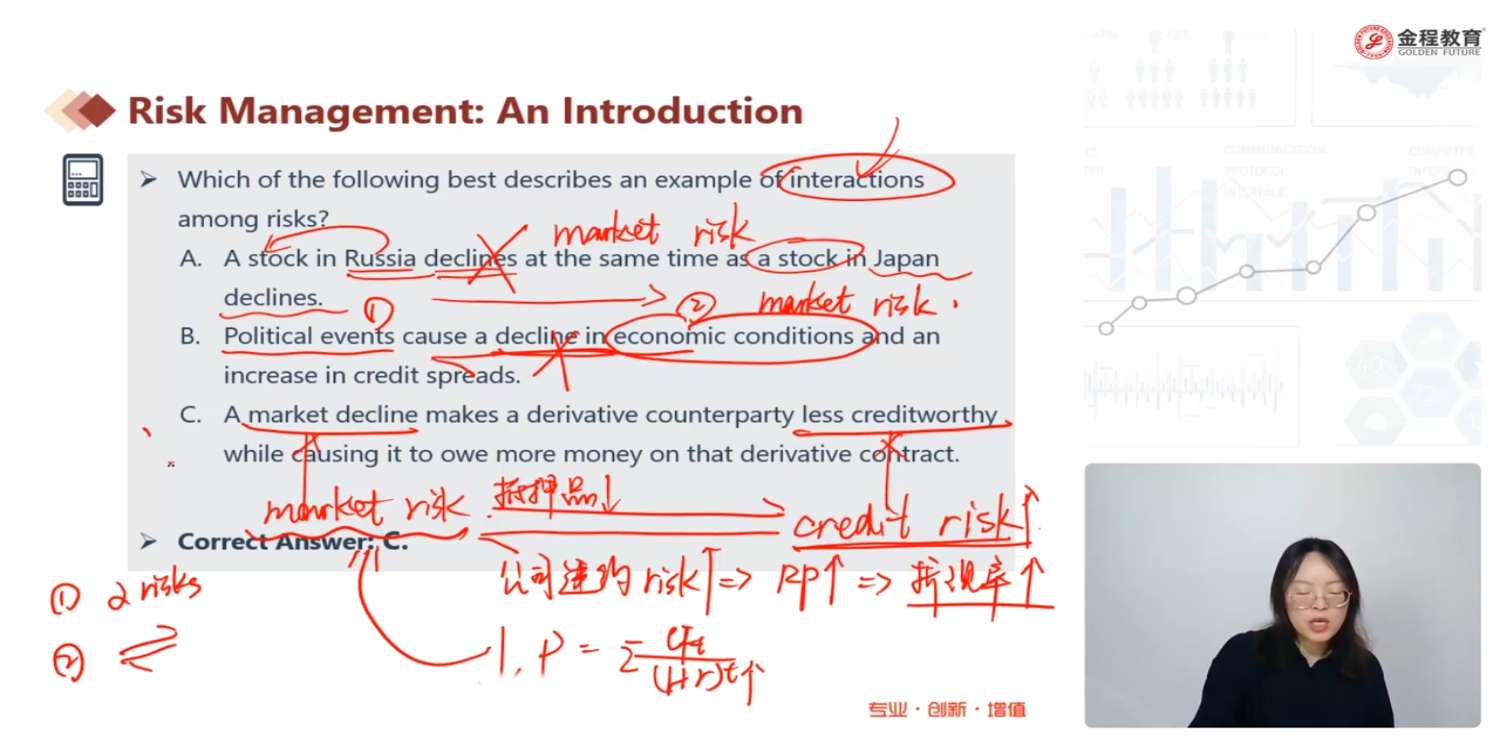 金程教育
GOLDEN FUTURE
Risk Management: An Introduction
➤ Which of the following best describes an example of interactions
among risks?
market risk
A. A stock in Russia declines at the same time as a stock in Japan
declines.
① ② market risk.
B. Political events cause a decline in economic conditions and an
increase in credit spreads.
C. A market decline makes a derivative counterparty less creditworthy
while causing it to owe more money on that derivative contract.
market risk 抵押品↓ credit risk↑
➤ Correct Answer: C.
公司违约 risk↑ => RP↑ => 折现率↑
① 2 risks
② ⇌
P =
专业・创新・增值